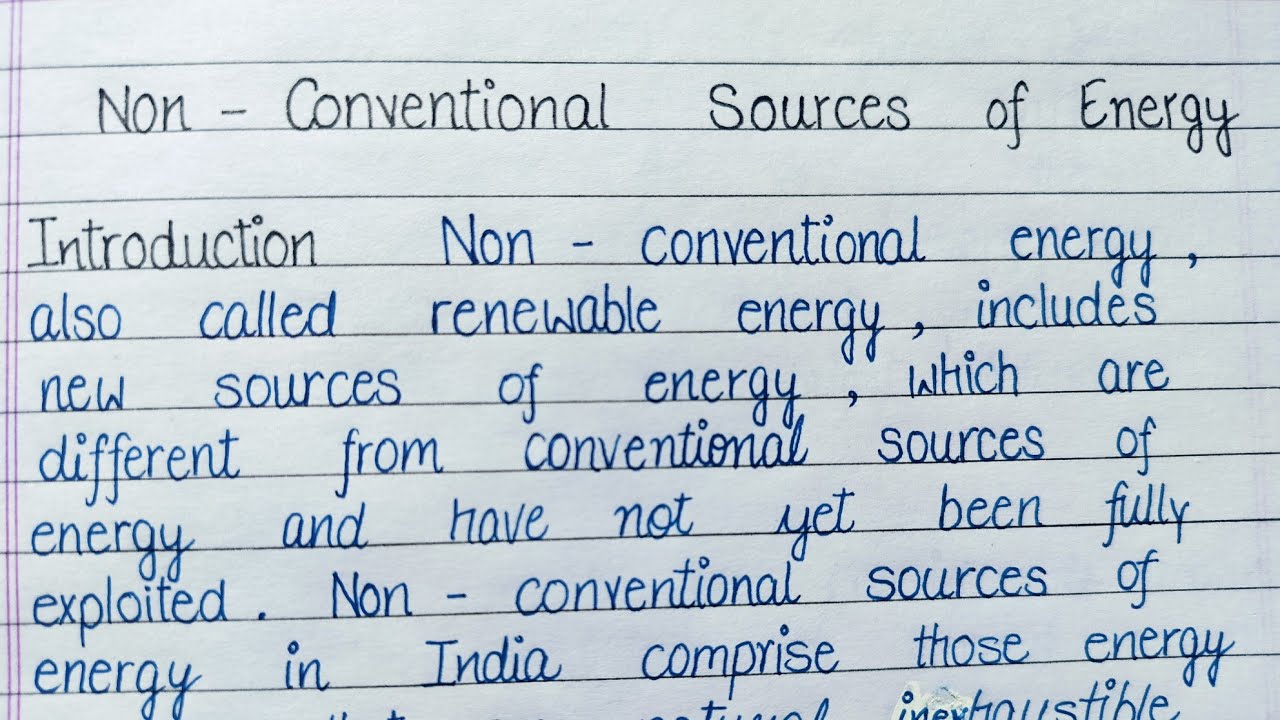 Non - Conventional Sources of Energy
Introduction Non - conventional energy,
also called renewable energy, includes
new sources of energy, which are
different from conventional sources of
energy and have not yet been fully
exploited. Non - conventional sources of
energy in India comprise those energy
natural inexhaustible